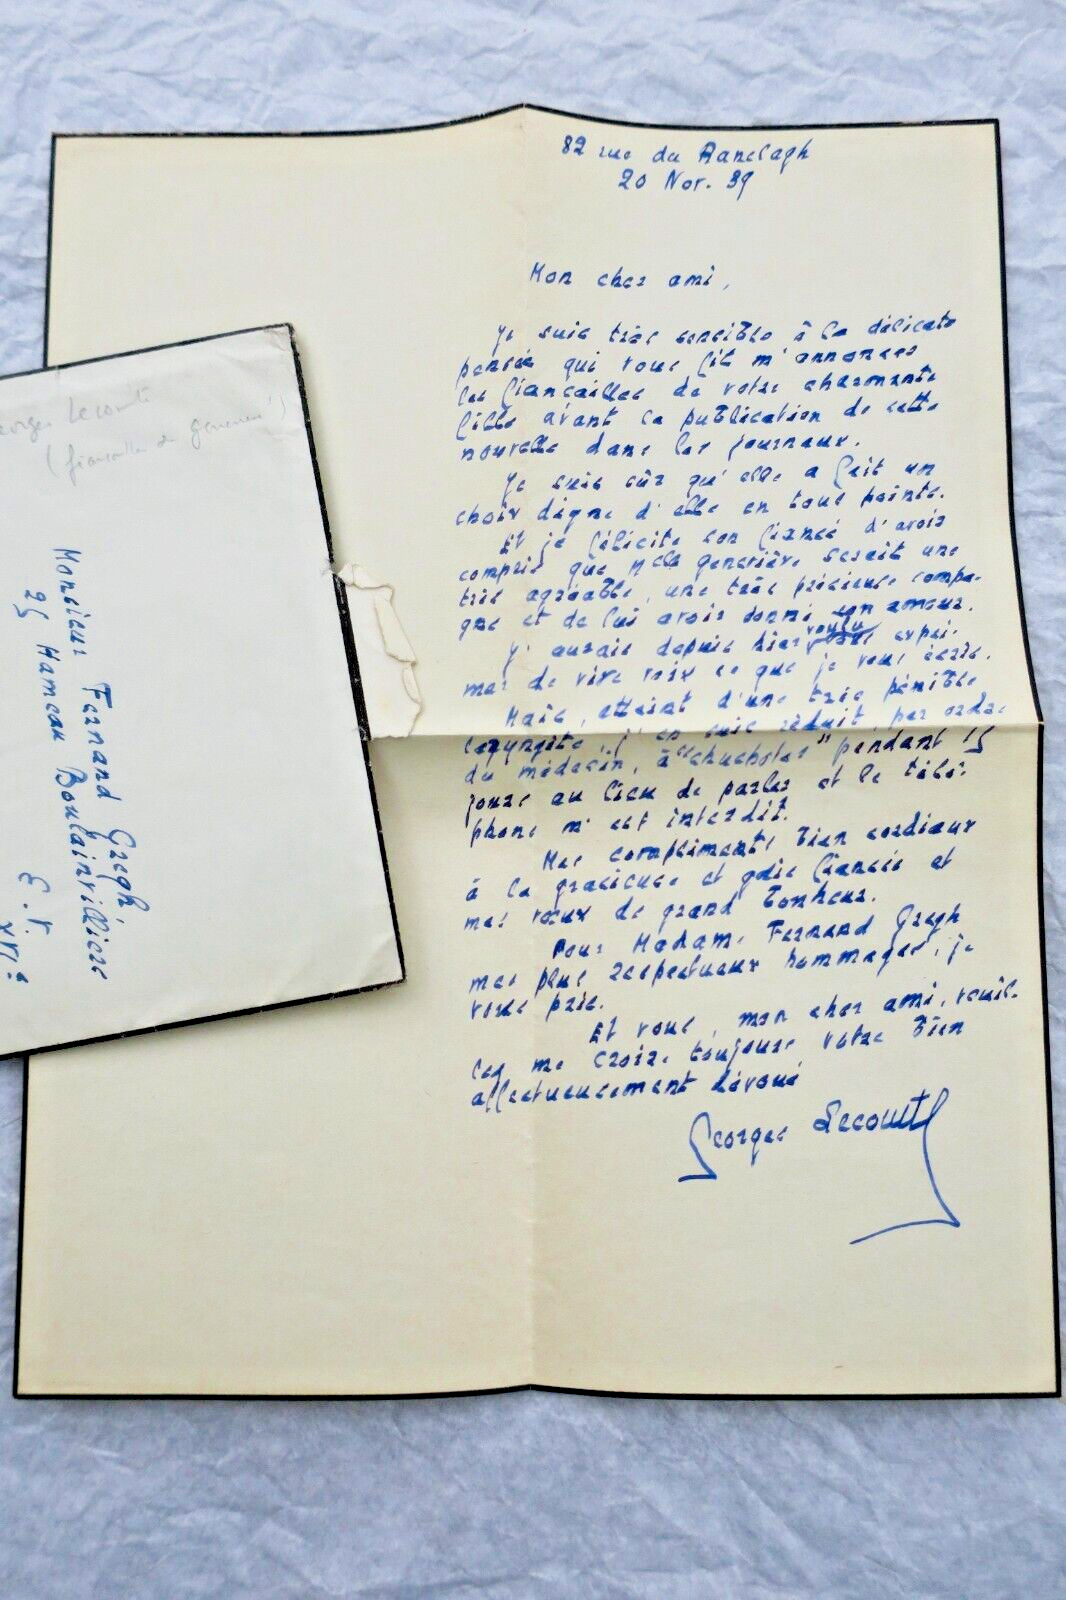 82 rue du Ranelagh
20 Nov. 39
Mon cher ami,
Je suis très sensible à la délicate
pensée qui vous fit m'annoncer
les fiançailles de votre charmante
fille avant la publication de cette
nouvelle dans les journaux.
Je suis sûr qu'elle a fait un
choix digne d'elle en tous points.
Et je félicite son fiancé d'avoir
compris que Mlle Geneviève serait une
très agréable, une très précieuse compa-
gne et de lui avoir donné son amour.
J'aurais depuis hier voulu expri-
mer de vive voix ce que je vous écris.
Mais, atteint d'une très pénible
laryngite, j'en suis réduit, par ordre
du médecin, à "chuchoter" pendant 15
jours au lieu de parler et le télé-
phone m'est interdit.
Mes compliments bien cordiaux
à la gracieuse et jolie fiancée et
mes vœux de grand bonheur.
Pour Madame Fernand Gregh
mes plus respectueux hommages, je
vous prie.
Et vous, mon cher ami, veuil-
lez me croire toujours votre bien
affectueusement dévoué
Georges Lecomte
Lecomte
(fiançailles de Geneviève)
Monsieur Fernand Gregh
25 Hameau Boulainvilliers
E.V.
XVIe